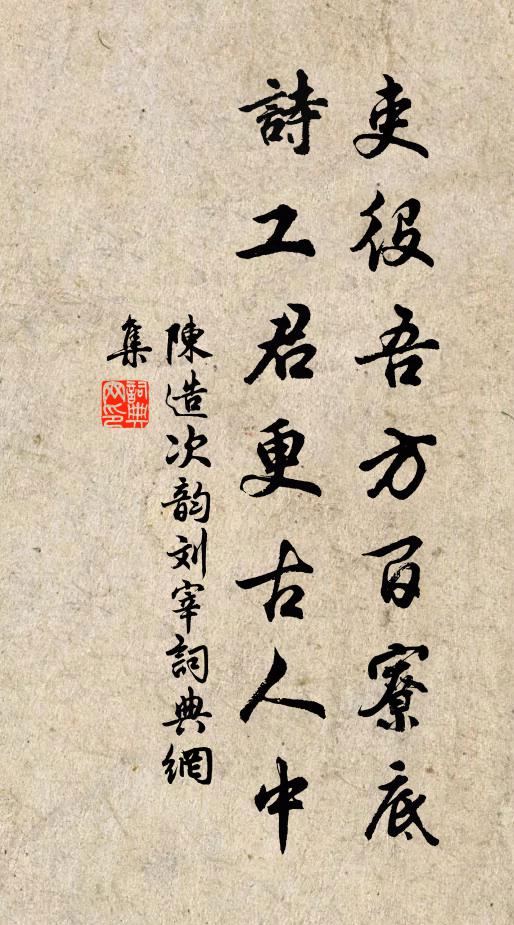 吏役吾方百寮底
詩工君更古人中
陳造次韵刘宰詞典網
集
詞典
网印